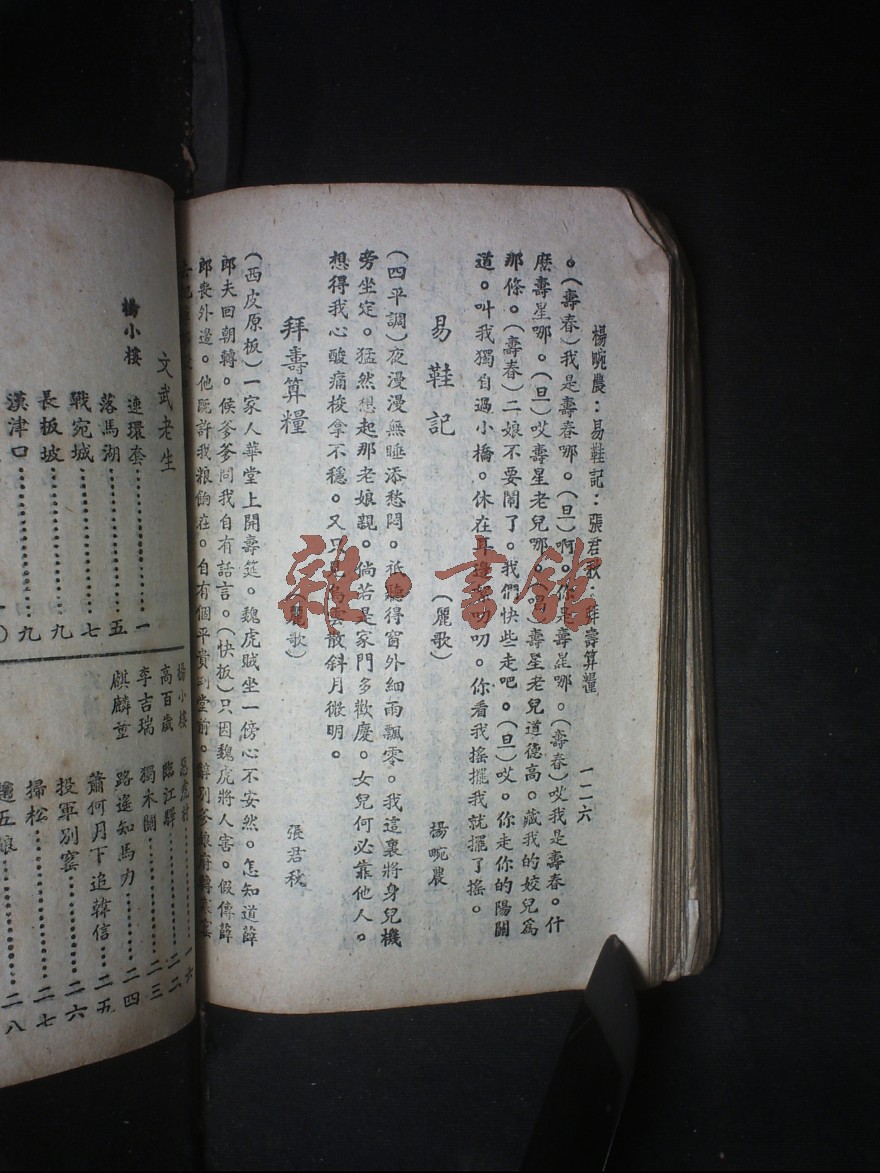 楊畹農：易鞋記：張君秋：拜壽算糧　一二六
。（壽春）我是壽春哪。（旦）啊。你是壽星哪。（壽春）哎我是壽春。什
麽壽星哪。（旦）哎壽星老兒哪。（唱）壽星老兒道德高。藏我的姣兒爲
那條。（壽春）二娘不要鬧了。我們快些走吧。（旦）哎。你走你的陽關
道。叫我獨自過小橋。休在耳邊叨叨。你看我搖擺我就擺了搖。
易鞋記　（麗歌）　楊畹農
（四平調）夜漫漫無睡添愁悶。祇聽得窗外細雨飄零。我這裏將身兒機
旁坐定。猛然想起那老娘親。倘若是家門多歡慶。女兒何必靠他人。
想得我心酸痛梭拿不穩。又只見烏雲散斜月微明。
拜壽算糧　（麗歌）　張君秋
（西皮原板）一家人華堂上開壽筵。魏虎賊坐一傍心不安然。怎知道薛
郎夫回朝轉。候爹爹問我自有話言。（快板）只因魏虎將人害。假傳薛
郎喪外邊。他既許我粮餉在。自有個平貴到堂前。辭別爹娘
文武老生
楊小樓　連環套……一
落馬湖……五
戰宛城……七
長板坡……九
漢津口……九
楊小樓　惡虎村……一六
高百歲　臨江驛……二二
李吉瑞　獨木關……二三
麒麟童　路遙知馬力……二四
蕭何月下追韓信……二五
投軍別窰……二六
掃松……二七
五娘……二八
雜·書館